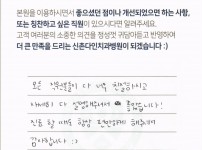 본원을 이용하시면서 좋으셨던 점이나 개선되었으면 하는 사항,
또는 칭찬하고 싶은 직원이 있으시다면 알려주세요.
고객 여러분의 소중한 의견을 정성껏 귀담아듣고 반영하여
더 큰 만족을 드리는 신촌다인치과병원이 되겠습니다 :)
모든 직원분들이 다 너무 친절하시고
하나하나 다 설명해주셔서 좋았습니다!
진료 할 때도 항상 편안하게 해주셔서
감사합니다 :)